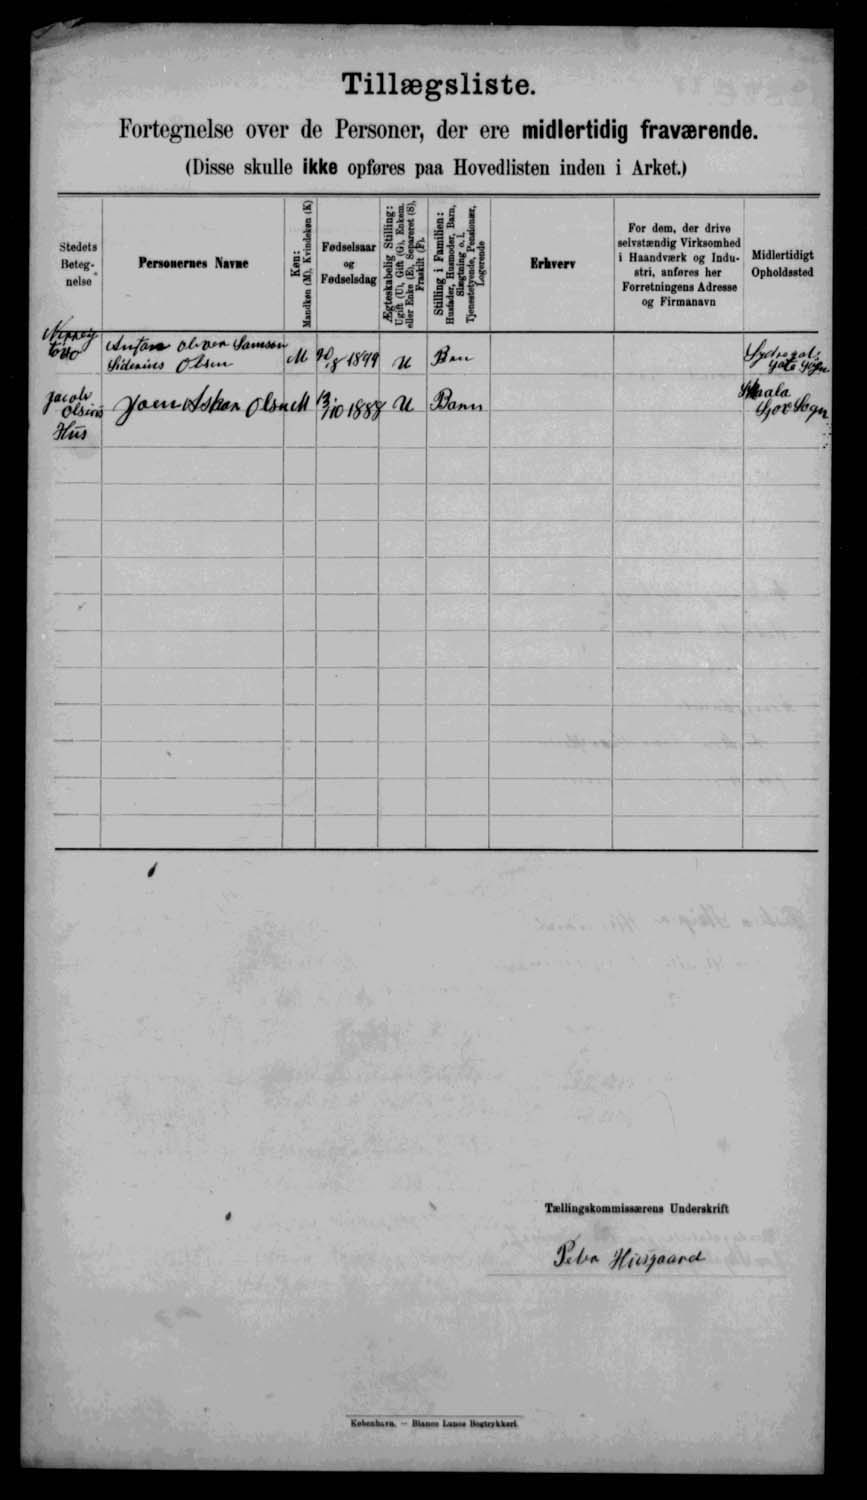 Tillægsliste.
Fortegnelse over de Personer, der ere midlertidig fraværende.
(Disse skulle ikke opføres paa Hovedlisten inden i Arket.)
Stedets
Beteg-
nelse
Personernes Navne
Køn:
Mandkøn (M), Kvindekøn (K)
Fødselsaar
og
Fødselsdag
Ægteskabelig Stilling:
Ugift (U), Gift (G), Enkem.
eller Enke (E), Separeret (S),
Fraskilt (F).
Stilling i Familien:
Husfader, Husmoder, Barn,
Slægtning o. l.
Tjenestetyende, Pensionær,
Logerende
Erhverv
For dem, der drive
selvstændig Virksomhed
i Haandværk og Indu-
stri, anføres her
Forretningens Adresse
og Firmanavn
Midlertidigt
Opholdssted
Anton Oliver Samson
Olsen
M
1899
U
Barn
Sogn
Jacob
Olsens
Hus
Olsen
M
13/10 1888
U
Barn
Sogn
Tællingskommissærens Underskrift
Husgaard
København. — Bianco Lunos Bogtrykkeri.